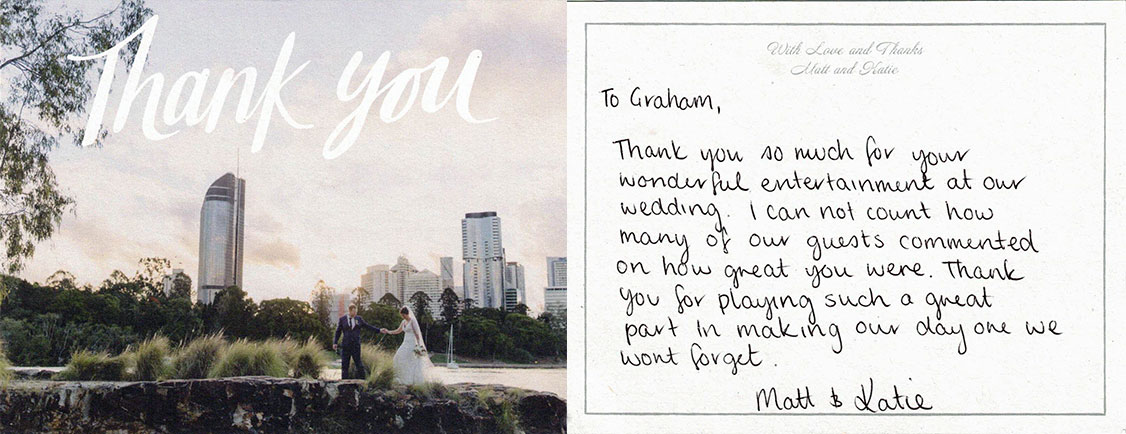 Thank you
With Love and Thanks
Matt and Katie
To Graham,
Thank you so much for your
wonderful entertainment at our
wedding. I can not count how
many of our guests commented
on how great you were. Thank
you for playing such a great
part in making our day one we
wont forget.
Matt & Katie